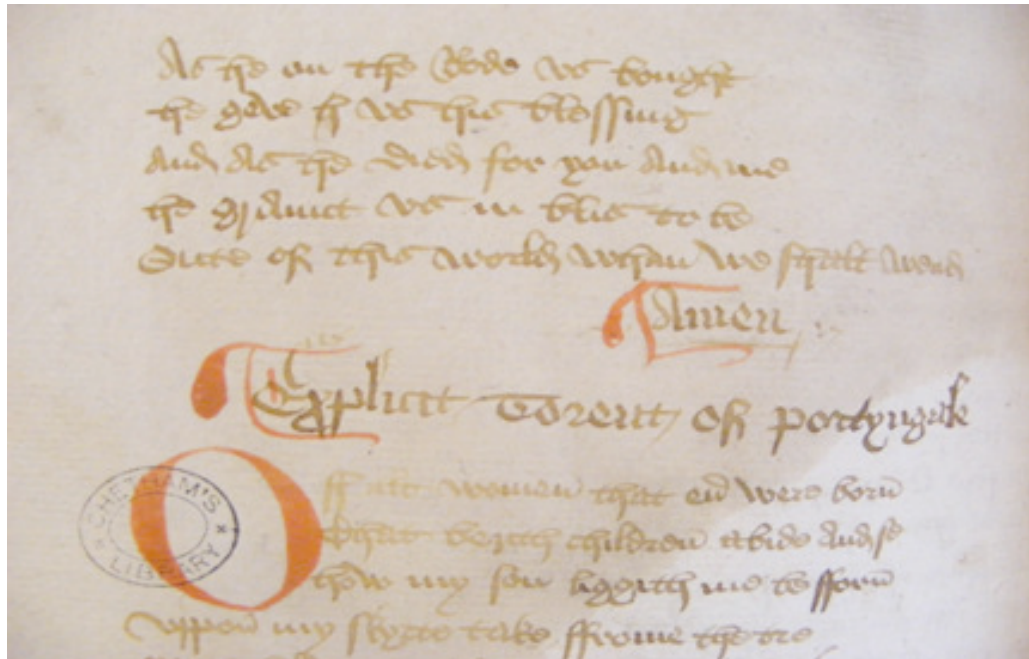 As he on the Rode vs bought
he geve vs his blessing
And As he died for you And me
he graunt vs in blis to be
Oute of this world whan we shall wend
Amen
Explicit Torent of portyngale
Off all women that eu were born
That berith children abide And se
how my son liggith me befforn
vppon my skyrte take ffrome the tre
CHETHAM'S LIBRARY